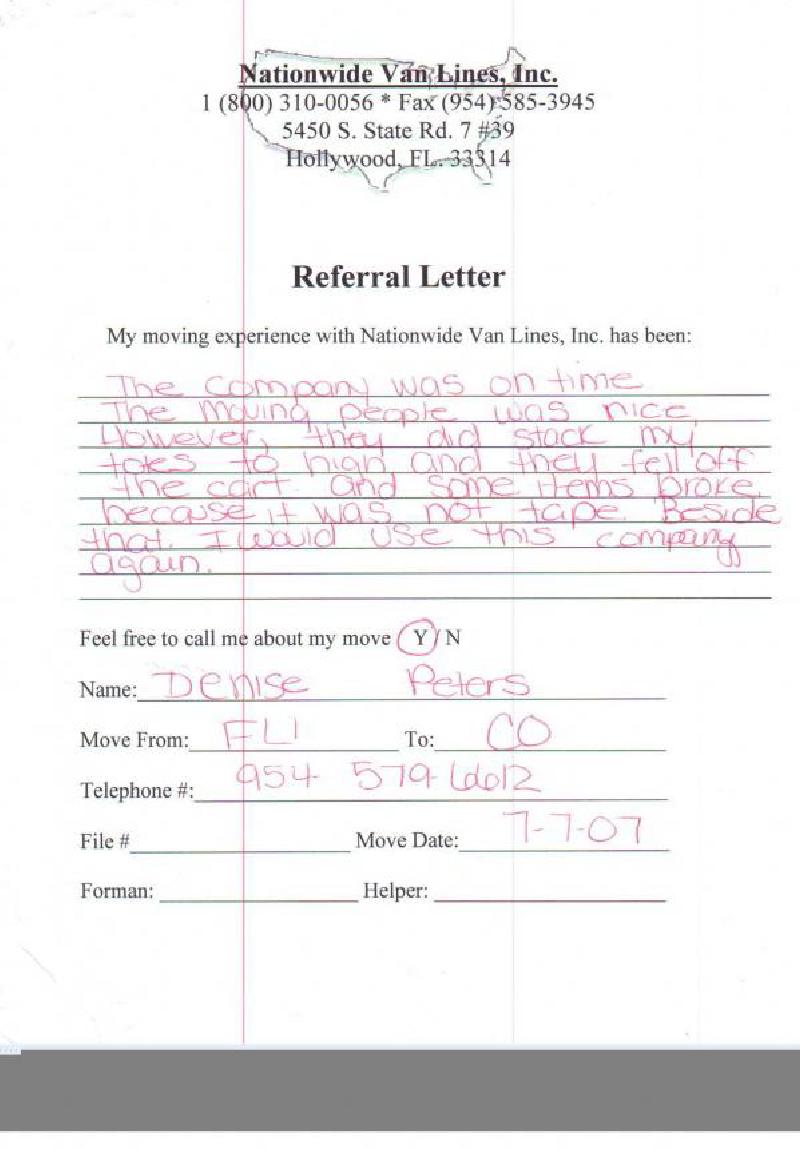 Nationwide Van Lines, Inc.
1 (800) 310-0056 * Fax (954) 585-3945
5450 S. State Rd. 7 #39
Hollywood, FL. 33314
Referral Letter
My moving experience with Nationwide Van Lines, Inc. has been:
The company was on time
The moving people was nice
However, they did stack my
totes to high and they fell off
the cart and some items broke
because it was not tape. Beside
that. I would use this company
again.
Feel free to call me about my move Y/N
Name: Denise Peters
Move From: FLl To: CO
Telephone #: 954 579-6612
File # Move Date: 7-7-07
Forman: Helper: